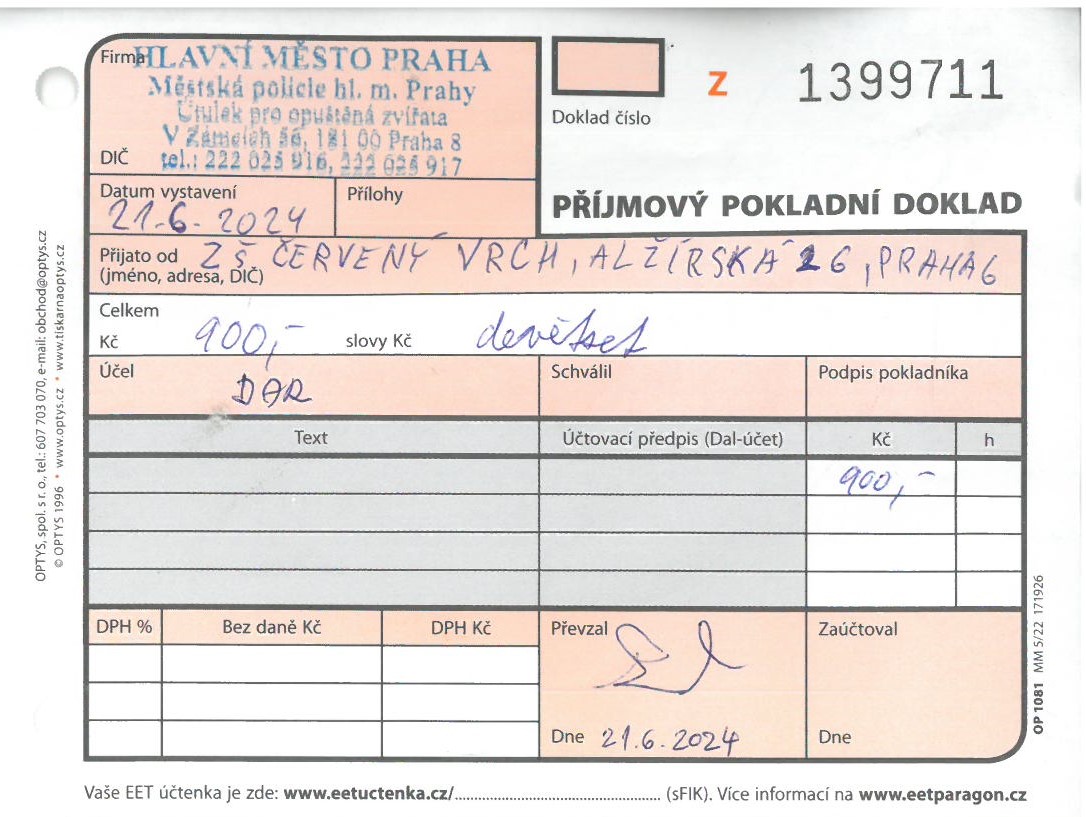 Firma HLAVNÍ MĚSTO PRAHA
Městská policie hl. m. Prahy
Útulek pro opuštěná zvířata
V Zámcích 56, 181 00 Praha 8
DIČ tel.: 222 025 916, 222 025 917
Z 1399711
Doklad číslo
PŘÍJMOVÝ POKLADNÍ DOKLAD
Datum vystavení Přílohy
21.6. 2024
Přijato od ZŠ ČERVENÝ VRCH, ALŽÍRSKÁ 26, PRAHA 6
(jméno, adresa, DIČ)
Celkem
Kč 900,- slovy Kč devětset
Účel Schválil Podpis pokladníka
DAR
Text Účtovací předpis (Dal-účet) Kč h
900,-
DPH % Bez daně Kč DPH Kč Převzal Zaúčtoval
Dne 21.6.2024 Dne
Vaše EET účtenka je zde: www.eetuctenka.cz/........................................ (sFIK). Více informací na www.eetparagon.cz
OPTYS, spol. s r. o., tel.: 607 703 070, e-mail: obchod@optys.cz
© OPTYS 1996 * www.optys.cz * www.tiskarnaoptys.cz
OP 1081 MM 5/22 171926